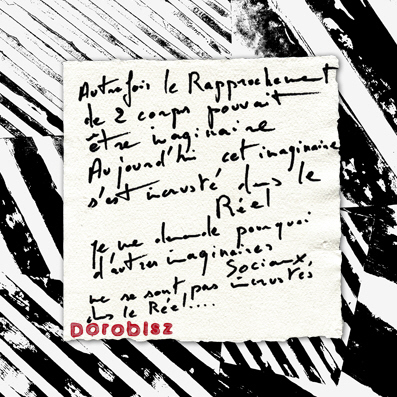 Autrefois le Rapprochement
de 2 corps pouvait
être imaginaire
Aujourd'hui cet imaginaire
s'est incrusté dans le
Réel
je me demande pourquoi
d'autres imaginaires
Sociaux,
ne se sont pas incrustés
dans le Réel....
DOROBISZ